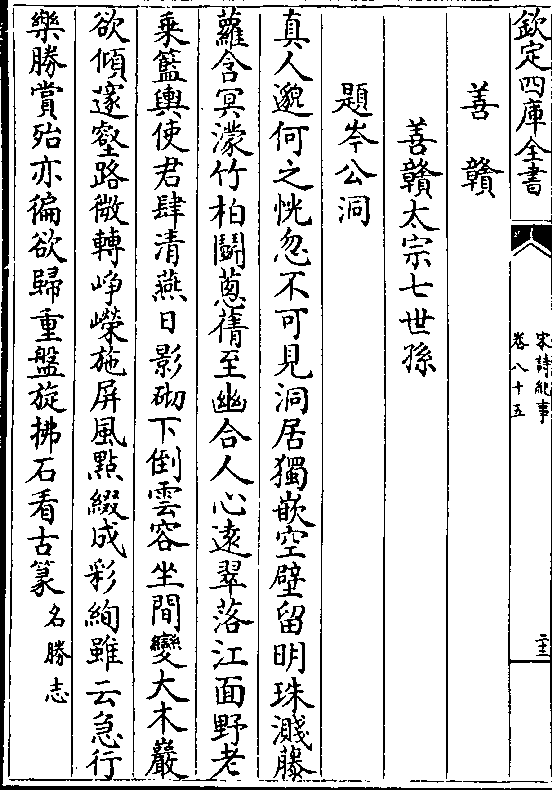 欽定四庫全書
宋詩紀事
卷八十五
善贛
善贛太宗七世孫
題岑公洞
真人邈何之恍忽不可見洞居獨嵌空壁留明珠濺藤
蘿含冥濛竹柏鬬蔥蒨至幽合人心遠翠落江面野老
乘籃輿使君肆清燕日影砌下倒雲容坐間變大木巖
欲傾邃壑路微轉崢嶸施屏風點綴成彩絢雖云急行
樂勝賞殆亦徧欲歸重盤旋拂石看古篆名勝志